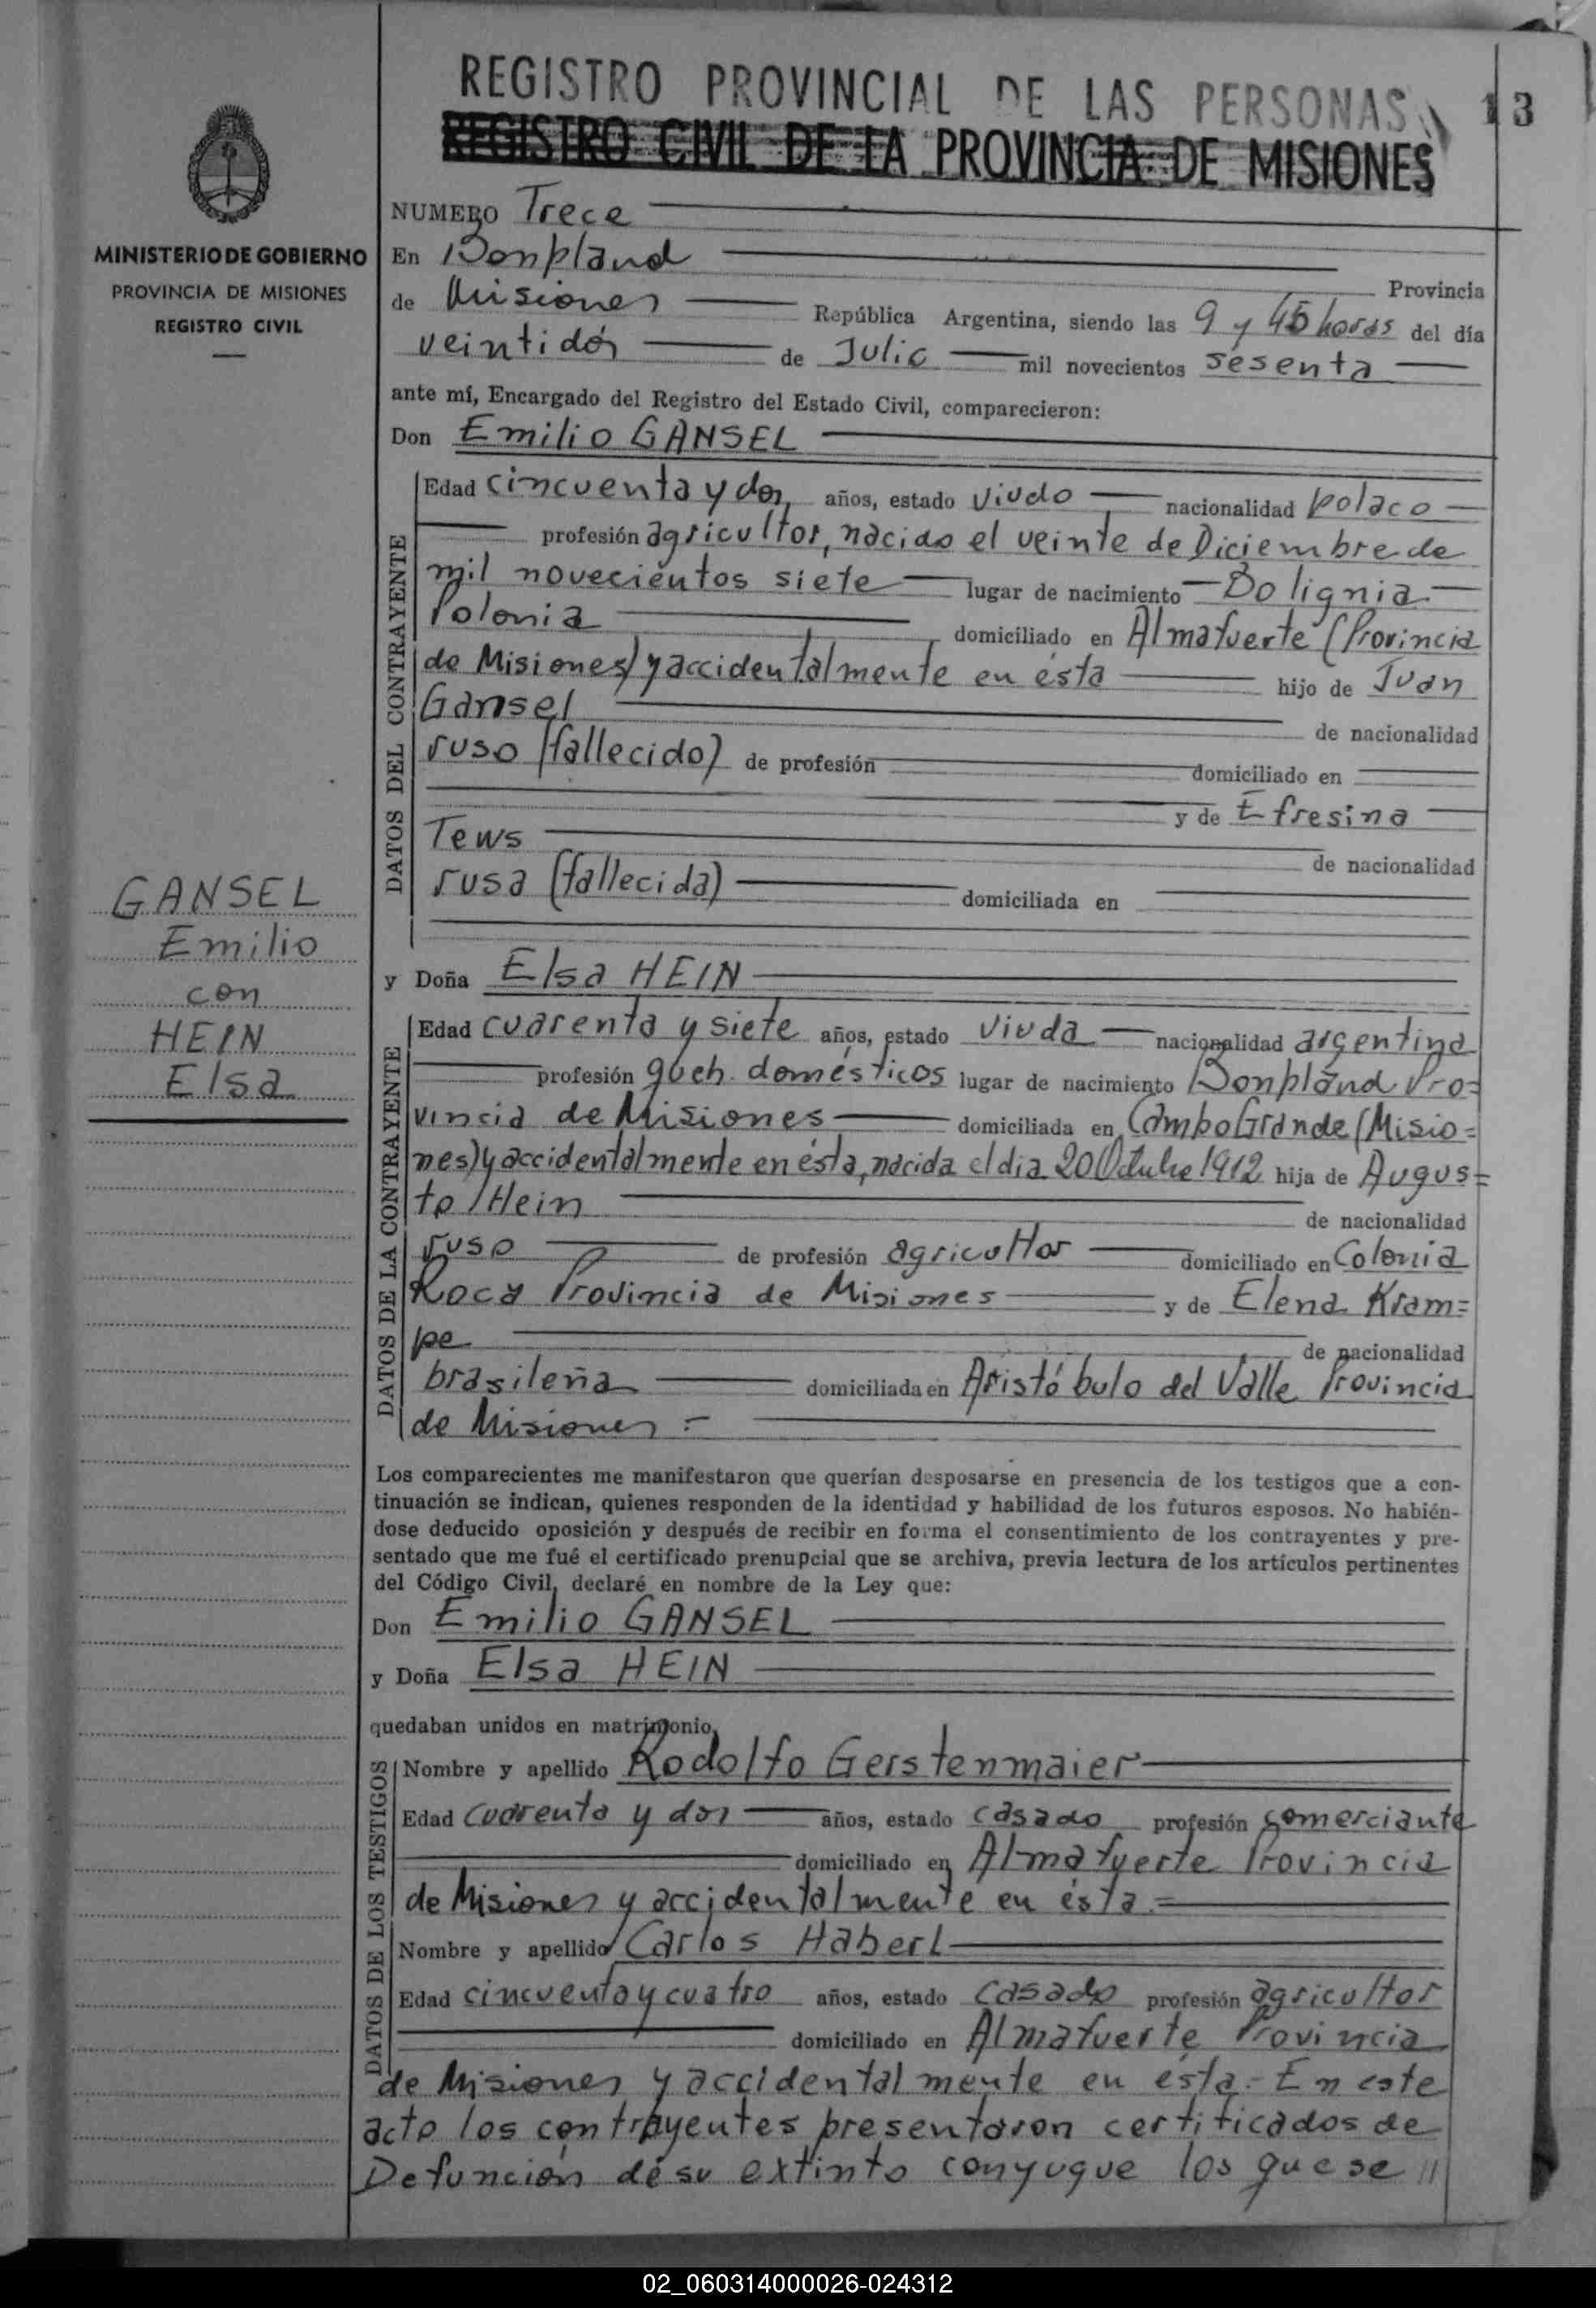 REGISTRO PROVINCIAL DE LAS PERSONAS
13
REGISTRO CIVIL DE LA PROVINCIA DE MISIONES
MINISTERIO DE GOBIERNO
PROVINCIA DE MISIONES
REGISTRO CIVIL
GANSEL
Emilio
con
HEIN
Elsa
NUMERO Trece
En Bonpland
Provincia
de Misiones República Argentina, siendo las 9 y 45 horas del día
veintidós de Julio mil novecientos sesenta
ante mí, Encargado del Registro del Estado Civil, comparecieron:
Don Emilio GANSEL
DATOS DEL CONTRAYENTE
Edad cincuenta y dos años, estado viudo nacionalidad polaco
profesión agricultor, nacido el veinte de Diciembre de
mil novecientos siete lugar de nacimiento Bolignia
Polonia domiciliado en Almafuerte (Provincia
de Misiones) y accidentalmente en ésta hijo de Juan
Gansel de nacionalidad
ruso (fallecido) de profesión domiciliado en
y de Efresina
Tews de nacionalidad
rusa (fallecida) domiciliada en
y Doña Elsa HEIN
DATOS DE LA CONTRAYENTE
Edad cuarenta y siete años, estado viuda nacionalidad argentina
profesión queh. domésticos lugar de nacimiento Bonpland Pro=
vincia de Misiones domiciliada en Campo Grande (Misio=
nes) y accidentalmente en ésta, nacida el dia 20 Octubre 1912 hija de Augus=
to Hein de nacionalidad
ruso de profesión agricultor domiciliado en Colonia
Roca Provincia de Misiones y de Elena Kram=
pe de nacionalidad
brasileña domiciliada en Aristóbulo del Valle Provincia
de Misiones =
Los comparecientes me manifestaron que querían desposarse en presencia de los testigos que a con-
tinuación se indican, quienes responden de la identidad y habilidad de los futuros esposos. No habién-
dose deducido oposición y después de recibir en forma el consentimiento de los contrayentes y pre-
sentado que me fué el certificado prenupcial que se archiva, previa lectura de los artículos pertinentes
del Código Civil, declaré en nombre de la Ley que:
Don Emilio GANSEL
y Doña Elsa HEIN
quedaban unidos en matrimonio,
DATOS DE LOS TESTIGOS
Nombre y apellido Rodolfo Gerstenmaier
Edad cuarenta y dos años, estado casado profesión comerciante
domiciliado en Almafuerte Provincia
de Misiones y accidentalmente en ésta.=
Nombre y apellido Carlos Haberl
Edad cincuenta y cuatro años, estado casado profesión agricultor
domiciliado en Almafuerte Provincia
de Misiones y accidentalmente en ésta.- En este
acto los contrayentes presentaron certificados de
Defunción de su extinto conyugue los que se //
02_060314000026-024312